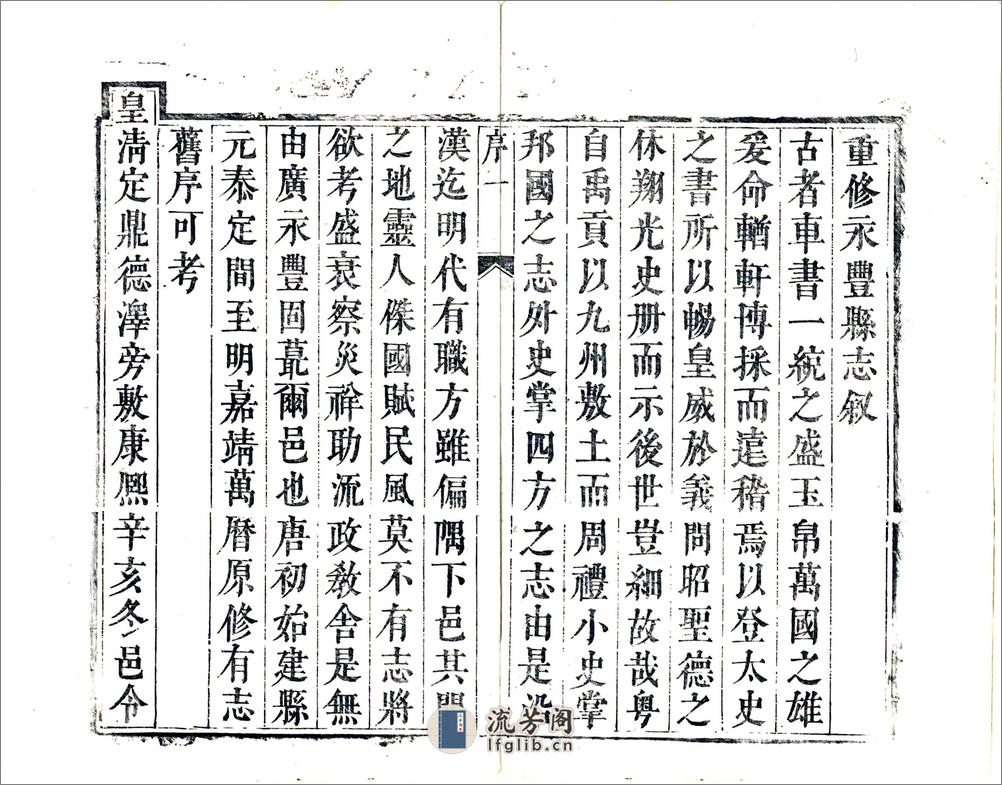 重修永豐縣志敘
古者車書一統之盛玉帛萬國之雄
爰命輶軒博採而遠稽焉以登太史
之書所以暢皇威於義問昭聖德之
休翔光史册而示後世豈細故哉粵
自禹貢以九州敷土而周禮小史掌
邦國之志外史掌四方之志由是沿
序 一
漢迄明代有職方雖偏隅下邑其間
之地靈人傑國賦民風莫不有志將
欲考盛衰察災祥助流政教舍是無
由廣永豐固蕞爾邑也唐初始建縣
元泰定間至明嘉靖萬曆原修有志
舊序可考
皇清定鼎德澤旁敷康熙辛亥冬邑令
流芳阁
lfglib.cn